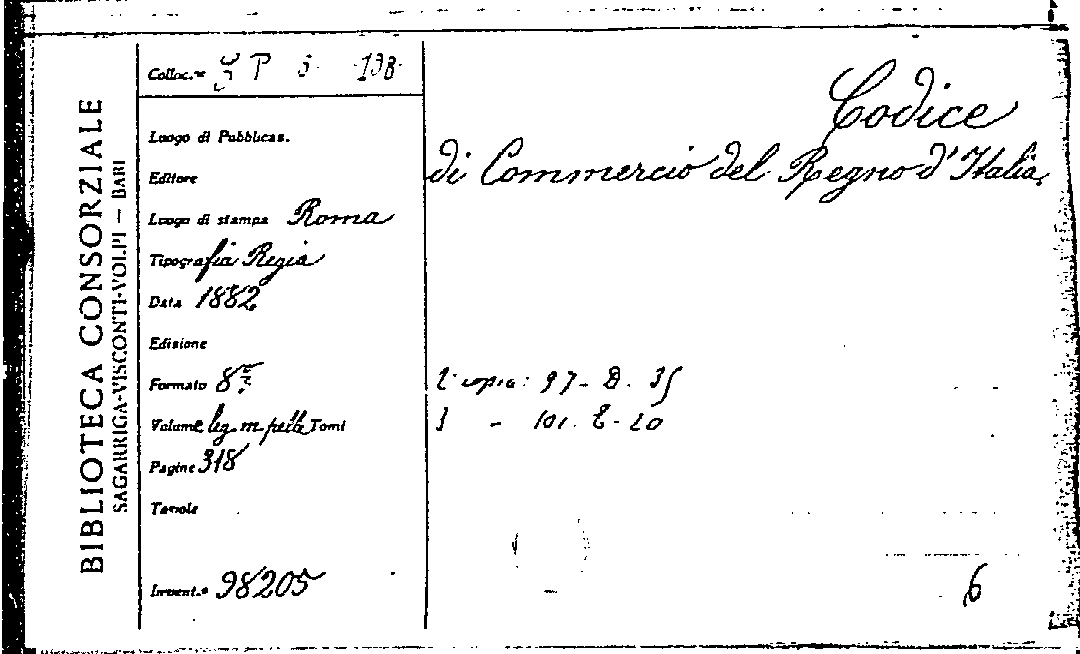 BIBLIOTECA CONSORZIALE
SAGARRIGA-VISCONTI-VOLPI — BARI
Colloc.ne P 138
Luogo di Pubblicas.
Editore
Luogo di stampa Roma
Tipografia Regia
Data 1882
Edizione
Formato 8º
Volume leg. m pelle Tomi
Pagine 318
Tavole
Invent.º 98205
Codice
di Commercio del Regno d'Italia.
2ª copia: 97- D. 35
3 - 101. E- 20
6